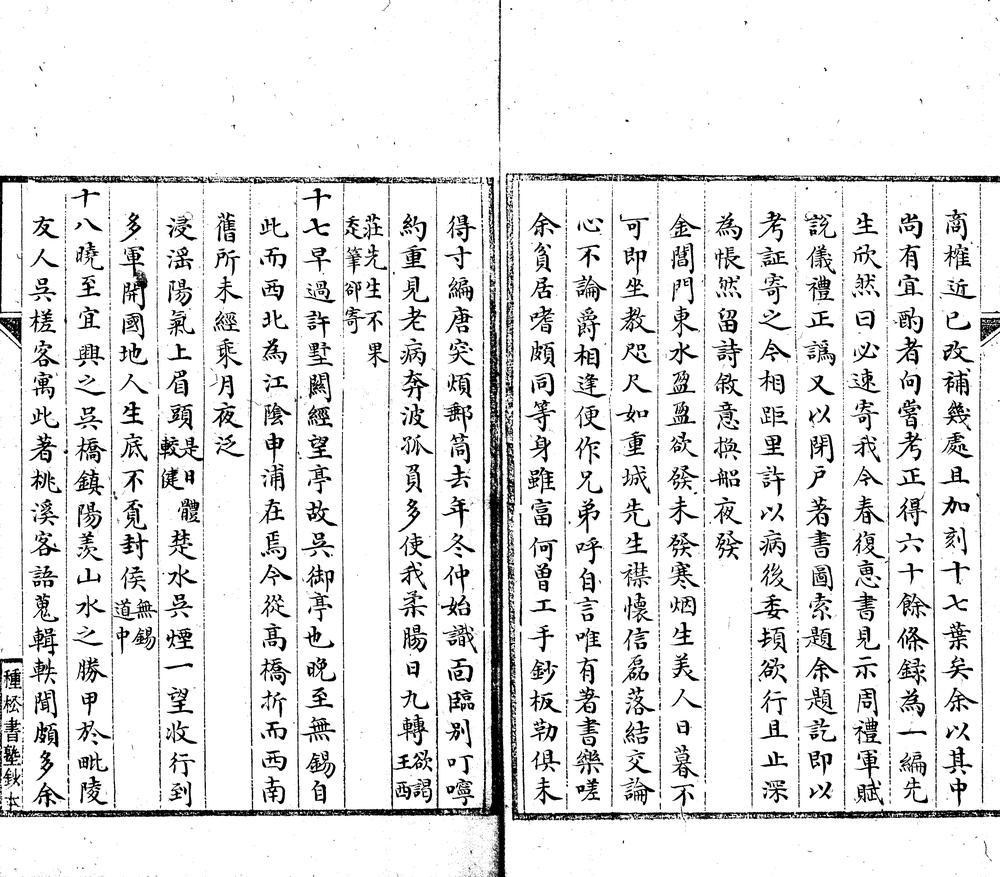 商榷近已改補幾處且加刻十七葉矣余以其中
尚有宜酌者向嘗考正得六十餘條録為一編先
生欣然曰必速寄我今春復惠書見示周禮軍賦
説儀禮正譌又以閉戸著書圖索題余題訖即以
考証寄之今相距里許以病後委頓欲行且止深
為悵然留詩敘意換船夜發
金閶門東水盈盈欲發未發寒烟生美人日暮不
可即坐教咫尺如重城先生襟懷信磊落結交論
心不論爵相逢便作兄弟呼自言唯有著書樂嗟
余貧居嗜頗同等身雖富何曾工手鈔板勒俱未
得寸編唐突煩郵筒去年冬仲始識面臨别叮嚀
約重見老病奔波孤負多使我柔腸日九轉欲謁王西
莊先生不果走筆卻寄
十七早過許墅關經望亭故吳御亭也晚至無錫自
此而西北為江陰申浦在焉今從髙橋折而西南
舊所未經乘月夜泛
浸滛陽氣上眉頭是日體較健楚水吳煙一望收行到
多軍開國地人生底不覓封侯無錫道中
十八曉至宜興之吳橋鎮陽羡山水之勝甲於毗陵
友人吳槎客寓此著桃溪客語蒐輯軼聞頗多余
種松書塾鈔本